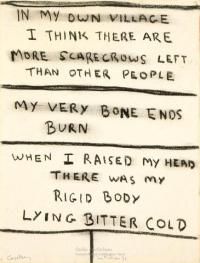 IN MY OWN VILLAGE
I THINK THERE ARE
MORE SCARECROWS LEFT
THAN OTHER PEOPLE
MY VERY BONE ENDS
BURN
WHEN I RAISED MY HEAD
THERE WAS MY
RIGID BODY
LYING BITTER COLD